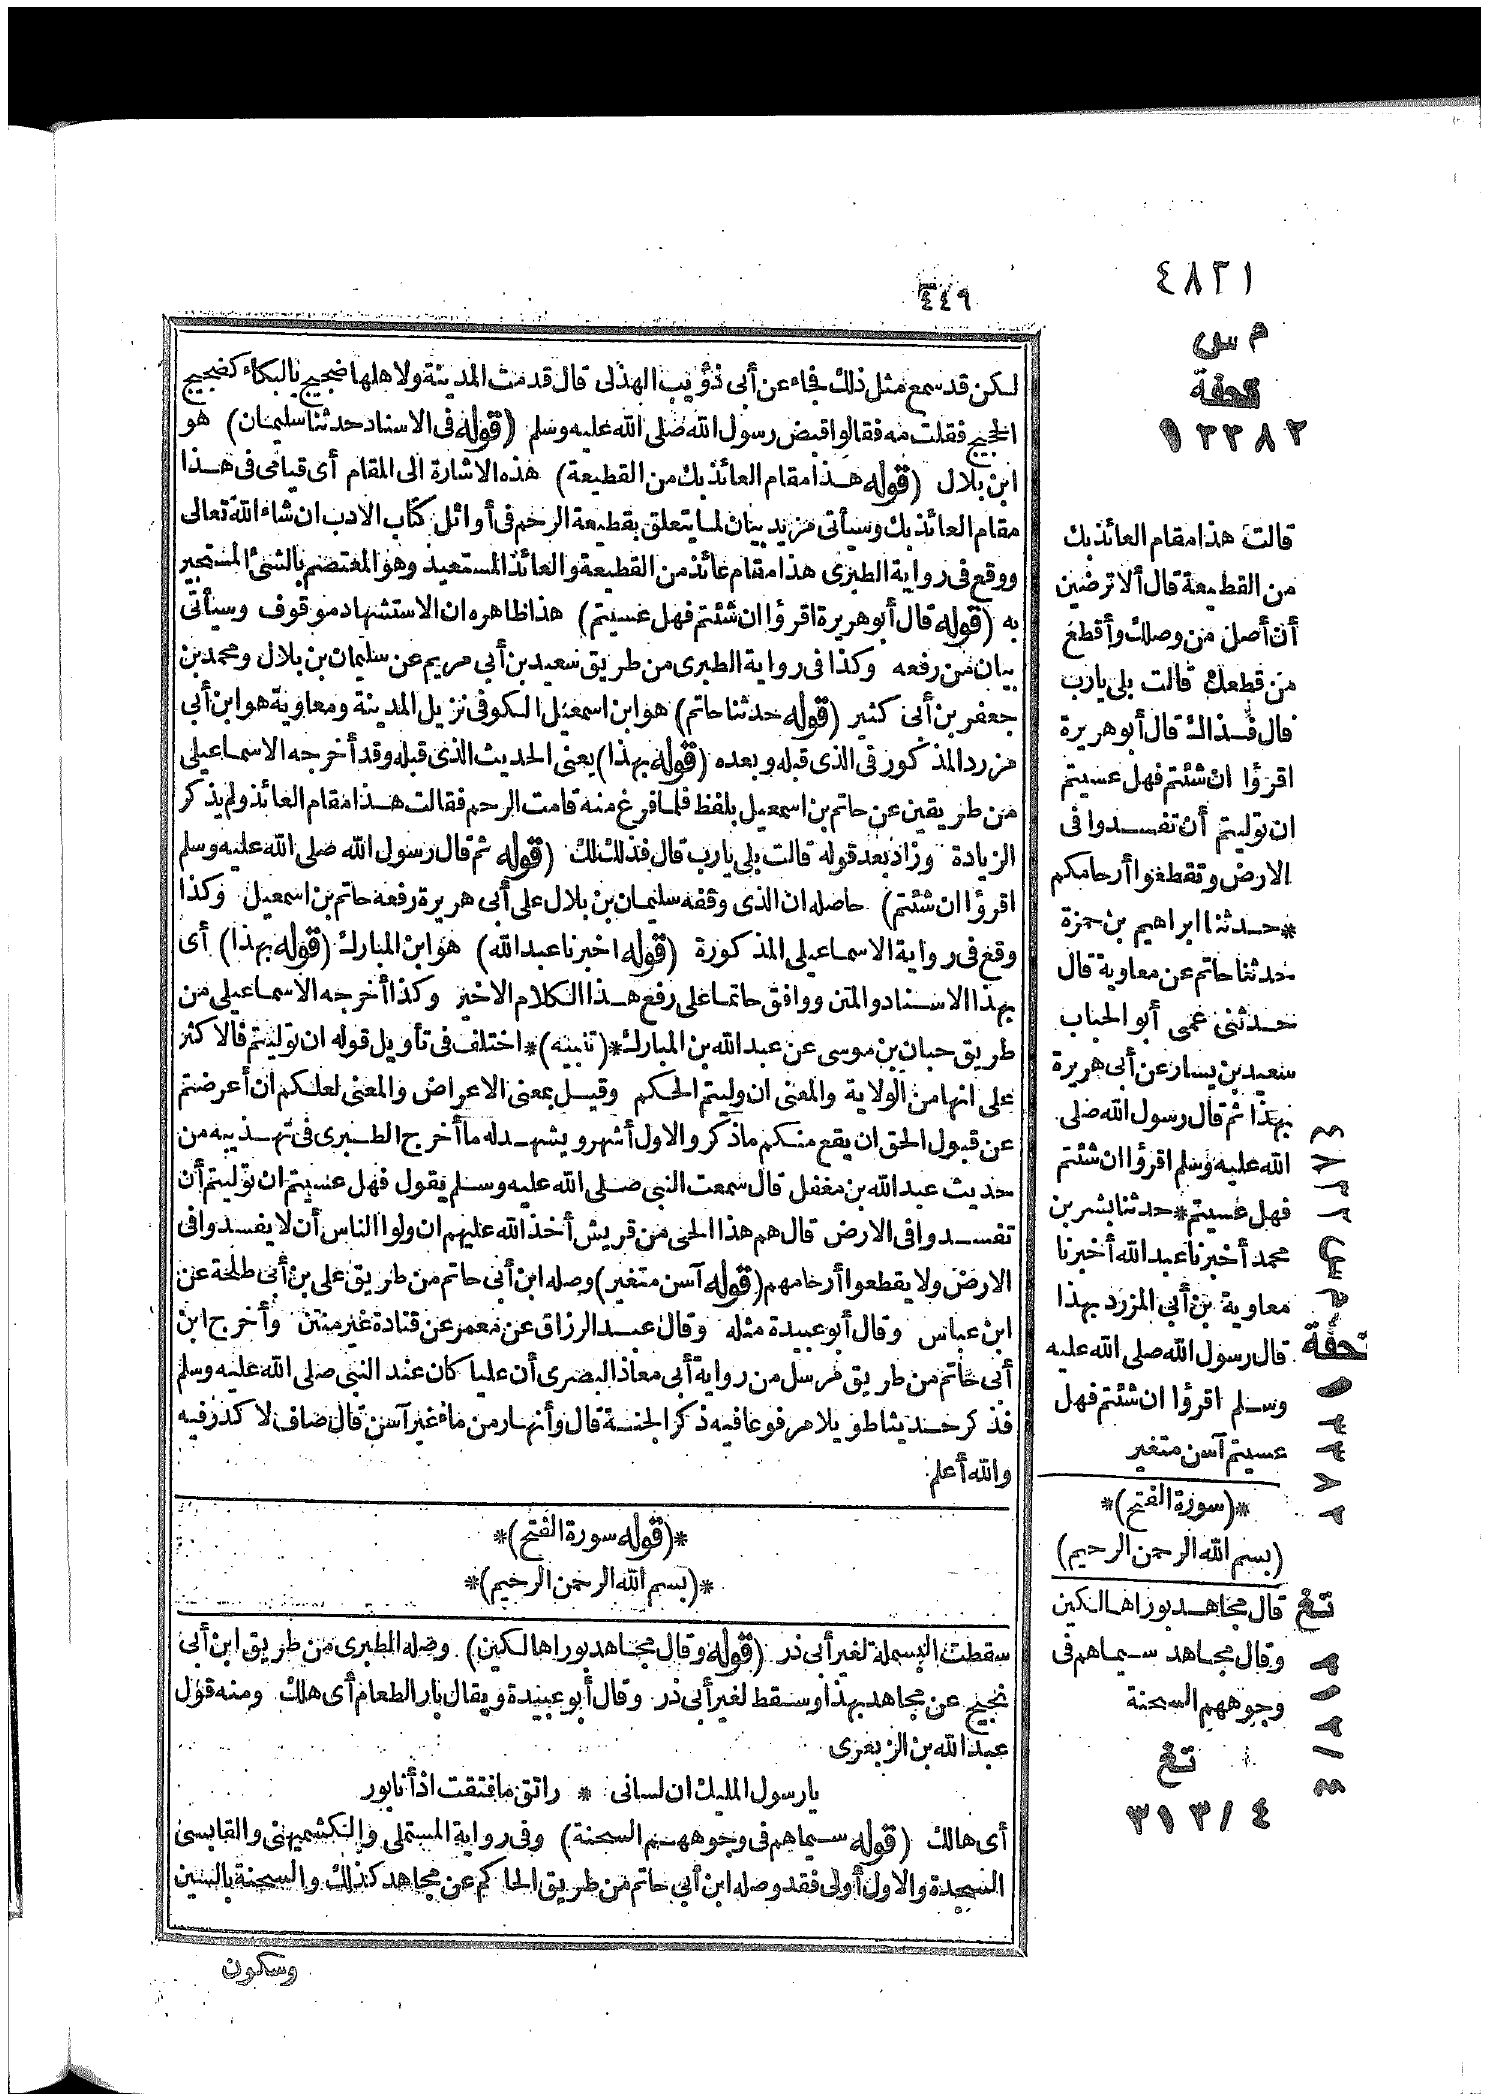 ٤٤٩
لكن قد سمع مثل ذلك فجاء عن أبى ذؤيب الهذلى قال قدمت المدينة ولاهلها ضجيج بالبكاء كضجيج
الحجيج فقلت مه فقالوا قبض رسول الله صلى الله عليه وسلم (قوله فى الاسناد حدثنا سليمان) هو
ابن بلال (قوله هذا مقام العائذ بك من القطيعة) هذه الاشارة الى المقام أى قيامى فى هذا
مقام العائذ بك وسيأتى مزيد بيان لما يتعلق بقطيعة الرحم فى أوائل كتاب الادب ان شاء الله تعالى
ووقع فى رواية الطبرى هذا مقام عائذ من القطيعة والعائذ المستعيذ وهو المعتصم بالشئ المستجير
به (قوله قال أبو هريرة اقرؤا ان شئتم فهل عسيتم) هذا ظاهره ان الاستشهاد موقوف وسيأتى
بيان من رفعه وكذا فى رواية الطبرى من طريق سعيد بن أبي مريم عن سليمان بن بلال ومحمد بن
جعفر بن أبى كثير (قوله حدثنا حاتم) هو ابن اسمعيل الكوفى نزيل المدينة ومعاوية هو ابن أبى
مزرد المذكور فى الذى قبله وبعده (قوله بهذا) يعنى الحديث الذى قبله وقد أخرجه الاسماعيلى
من طريقين عن حاتم بن اسمعيل بلفظ فلما فرغ منه قامت الرحم فقالت هذا مقام العائذ ولم يذكر
الزيادة وزاد بعد قوله قالت بلى يارب قال فذلك لك (قوله ثم قال رسول الله صلى الله عليه وسلم
اقرؤا ان شئتم) حاصله ان الذى وقفه سليمان بن بلال على أبى هريرة رفعه حاتم بن اسمعيل وكذا
وقع فى رواية الاسماعيلى المذكورة (قوله اخبرنا عبد الله) هو ابن المبارك (قوله بهذا) أى
بهذا الاسناد والمتن ووافق حاتما على رفع هذا الكلام الاخير وكذا أخرجه الاسماعيلى من
طريق حبان بن موسى عن عبد الله بن المبارك *(تنبيه)* اختلف فى تأويل قوله ان توليتم فالاكثر
على انها من الولاية والمعنى ان وليتم الحكم وقيل بمعنى الاعراض والمعنى لعلكم ان أعرضتم
عن قبول الحق ان يقع منكم ما ذكر والاول أشهر ويشهد له ما أخرج الطبرى فى تهذيبه من
حديث عبد الله بن مغفل قال سمعت النبى صلى الله عليه وسلم يقول فهل عسيتم ان توليتم أن
تفسدوا فى الارض قال هم هذا الحى من قريش أخذ الله عليهم ان ولوا الناس أن لا يفسدوا فى
الارض ولا يقطعوا أرحامهم (قوله آسن متغير) وصله ابن أبى حاتم من طريق على بن أبى طلحة عن
ابن عباس وقال أبو عبيدة مثله وقال عبد الرزاق عن معمر عن قتادة غير منتن وأخرج ابن
أبى حاتم من طريق مرسل من رواية أبى معاذ البصرى أن عليا كان عند النبى صلى الله عليه وسلم
فذكر حديثا طويلا مرفوعا فيه ذكر الجنة قال وأنهار من ماء غير آسن قال صاف لا كدر فيه
والله أعلم
*(قوله سورة الفتح)*
*(بسم الله الرحمن الرحيم)*
سقطت البسملة لغير أبى ذر (قوله وقال مجاهد بورا هالكين) وصله الطبرى من طريق ابن أبى
نجيح عن مجاهد بهذا وسقط لغير أبى ذر وقال أبو عبيدة ويقال بار الطعام أى هلك ومنه قول
عبد الله بن الزبعرى
يارسول المليك ان لسانى * راتق ما فتقت اذ أنا بور
أى هالك (قوله سيماهم فى وجوههم السحنة) وفى رواية المستملى والكشميهنى والقابسى
السجدة والاول أولى فقد وصله ابن أبي حاتم من طريق الحاكم عن مجاهد كذلك والسحنة بالسين
وسكون
٤٨٣١
م س
تحفة
١٣٣٨٢
قالت هذا مقام العائذ بك
من القطيعة قال ألا ترضين
أن أصل من وصلك وأقطع
من قطعك قالت بلى يارب
قال فذاك قال أبو هريرة
اقرؤا ان شئتم فهل عسيتم
ان توليتم أن تفسدوا فى
الارض وتقطعوا أرحامكم
*حدثنا ابراهيم بن حمزة
حدثنا حاتم عن معاوية قال
حدثنى عمى أبو الحباب
سعيد بن يسار عن أبى هريرة
بهذا ثم قال رسول الله صلى
الله عليه وسلم اقرؤا ان شئتم
فهل عسيتم *حدثنا بشر بن
محمد أخبرنا عبد الله أخبرنا
معاوية بن أبي المزرد بهذا
قال رسول الله صلى الله عليه
وسلم اقرؤا ان شئتم فهل
عسيتم آسن متغير
*(سورة الفتح)*
(بسم الله الرحمن الرحيم)
قال مجاهد بورا هالكين
وقال مجاهد سيماهم فى
وجوههم السحنة
تغ
٣١٣/٤
٤٨٣٢
م س
تحفة
١٣٣٨٢
تغ